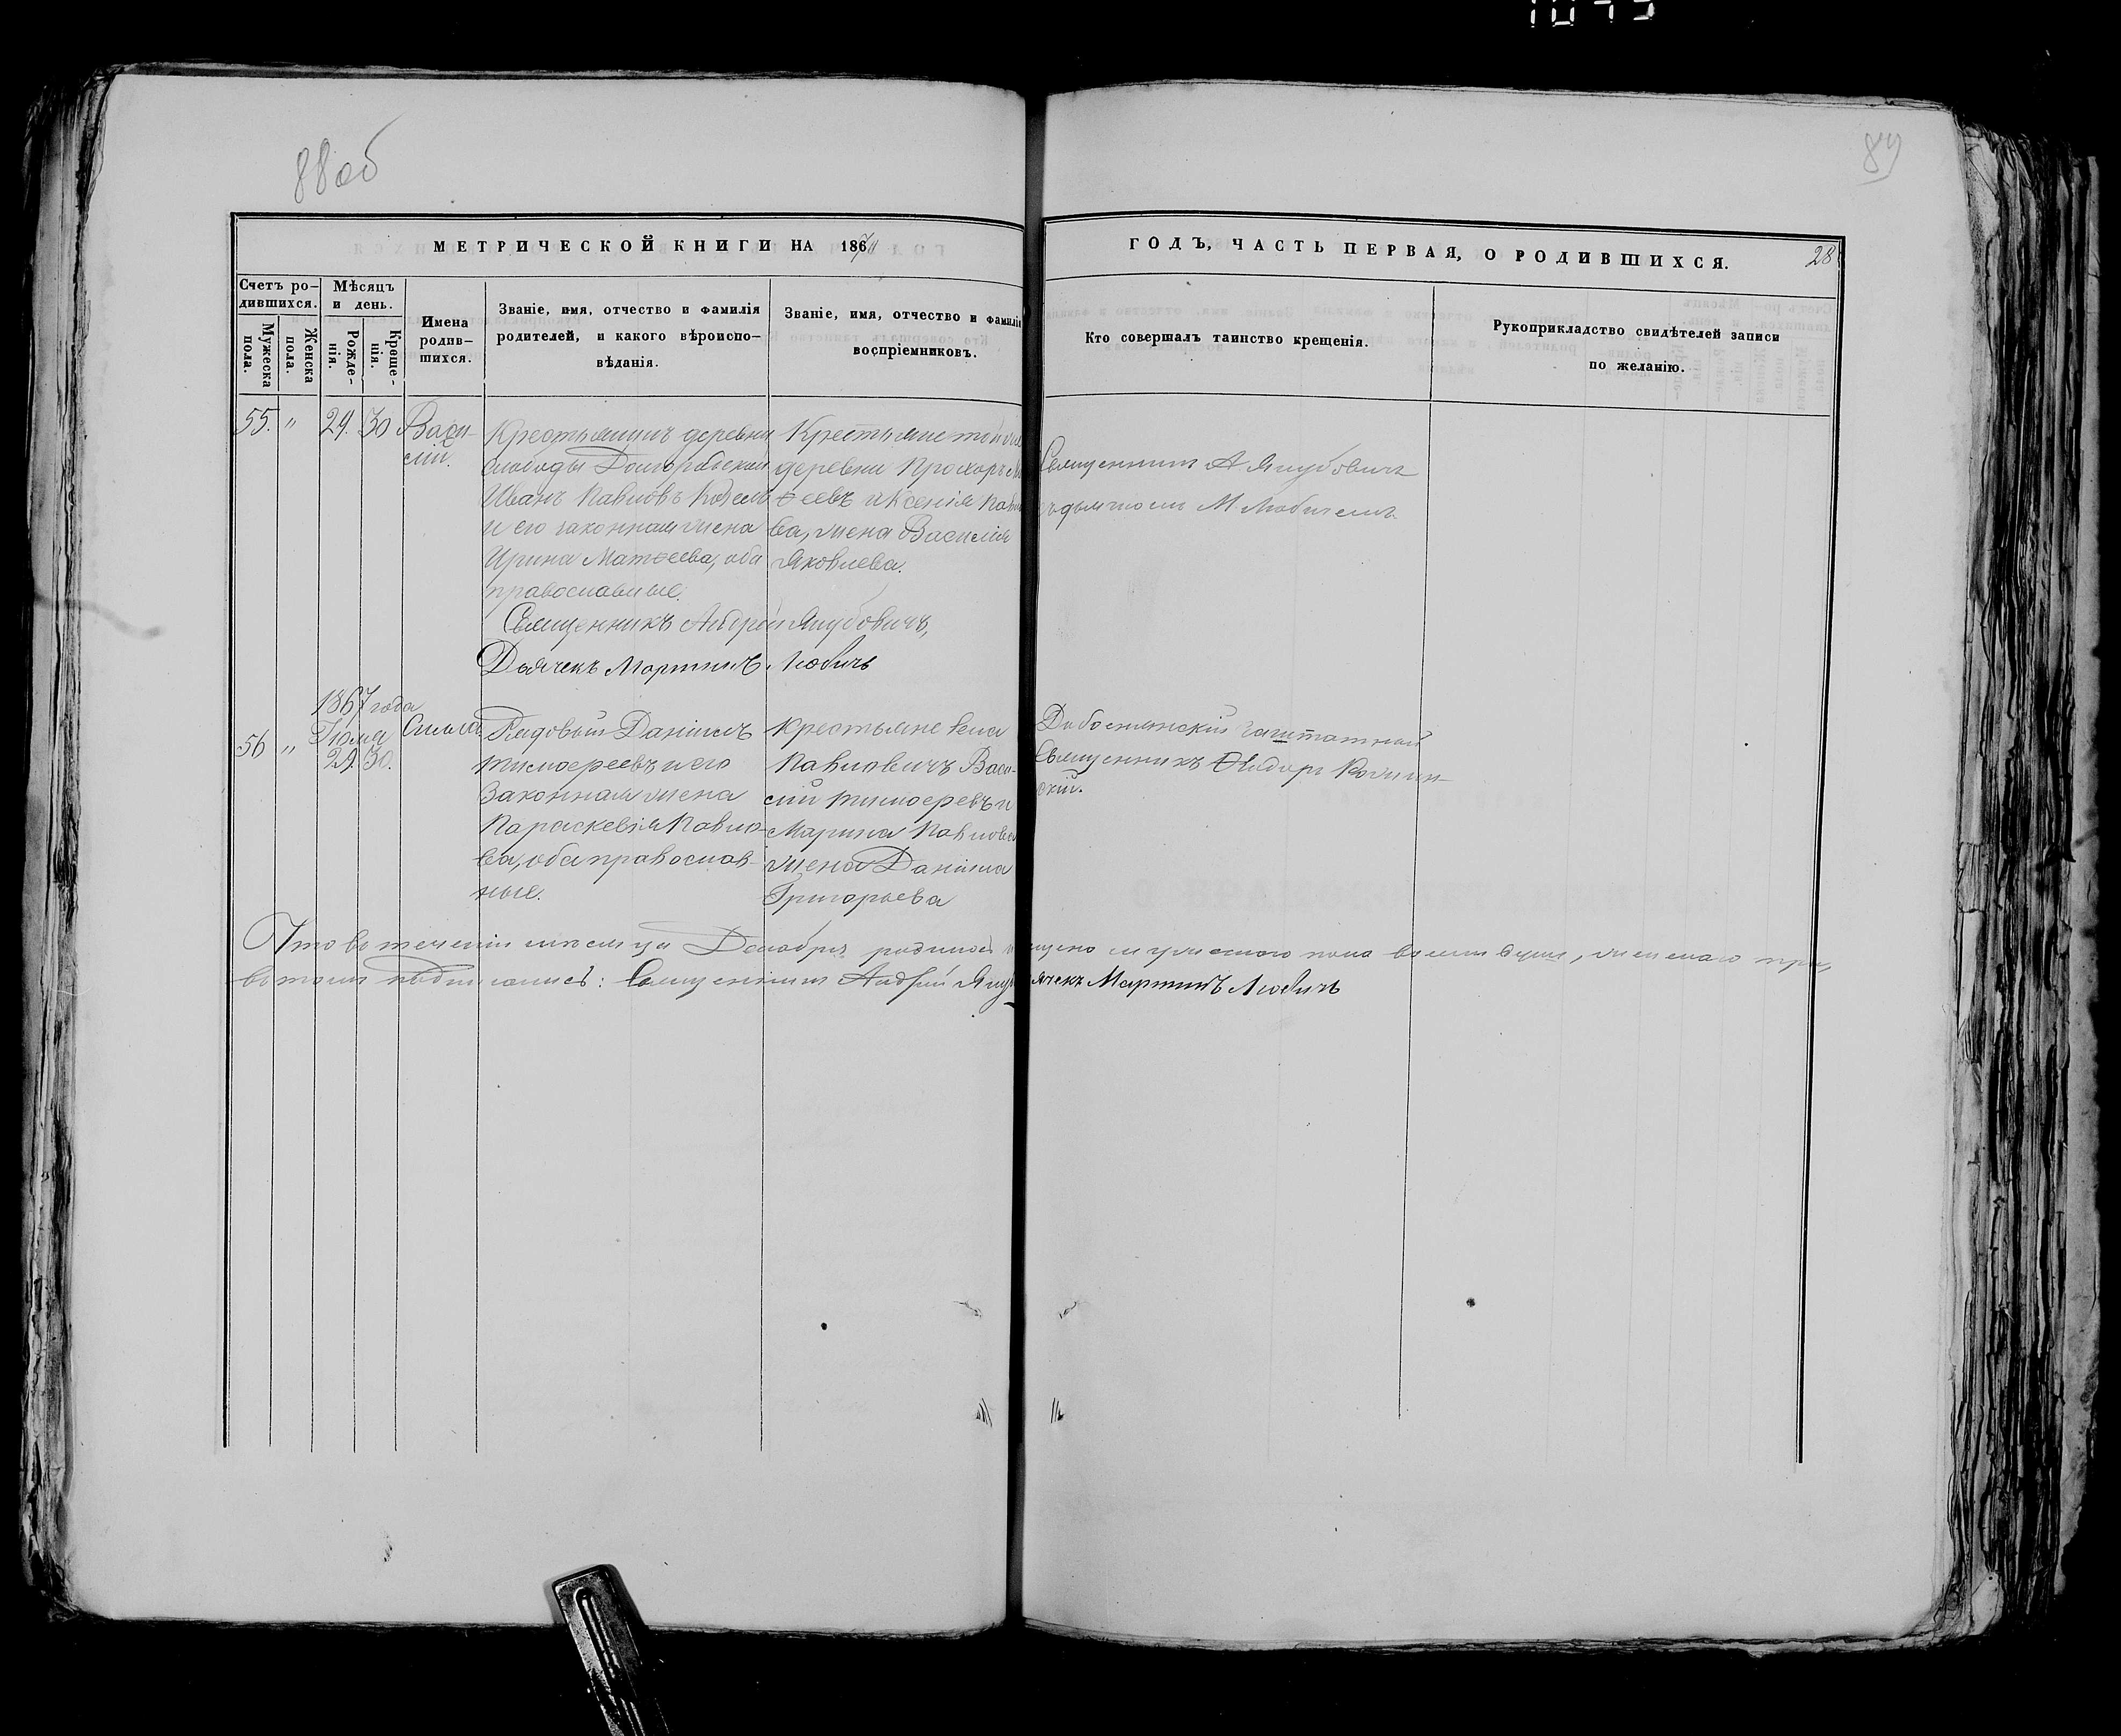 88 об
89
МЕТРИЧЕСКОЙ КНИГИ НА 1870
ГОДЪ, ЧАСТЬ ПЕРВАЯ, О РОДИВШИХСЯ.
28
Счетъ ро-
дившихся.
Мужеска
пола.
Женска
пола.
Мѣсяцъ
и день.
Рожде-
нія.
Креще-
нія.
Имена
родив-
шихся.
Званіе, имя, отчество и фамилія
родителей, и какого вѣроиспо-
вѣданія.
Званіе, имя, отчество и фамилія
воспріемниковъ.
Кто совершалъ таинство крещенія.
Рукоприкладство свидѣтелей записи
по желанію.
55. " 29. 30
Васи-
лій.
Крестьянинъ деревни
слободы
Иванъ Павловъ
и его законная жена
Ирина Матѳеева, оба
православные.
Крестьяне той же
деревни Прохоръ
ѳеевъ и Ксенія
ва, жена Василія
Яковлева.
Священникъ А Якубовичъ
М Любичемъ.
Священникъ Андрей Якубовичъ,
Дьячекъ Мартинъ Любичъ
56 "
1867 года
29. 30.
Рядовый Даніилъ
Тимоѳеевъ и его
законная жена
Параскевія Павло-
ва, оба православ-
ные.
Крестьяне
Павловичъ Васи-
лій Тимоѳеевъ и
Марина Павлова
жена Даніила
Григорьева
заштатный
Священникъ
скій.
Что въ теченіи мѣсяца Декабря родилось
мужескаго пола восемь, женскаго
въ томъ подписались: Священникъ Андрей
ячекъ Мартинъ Любичъ